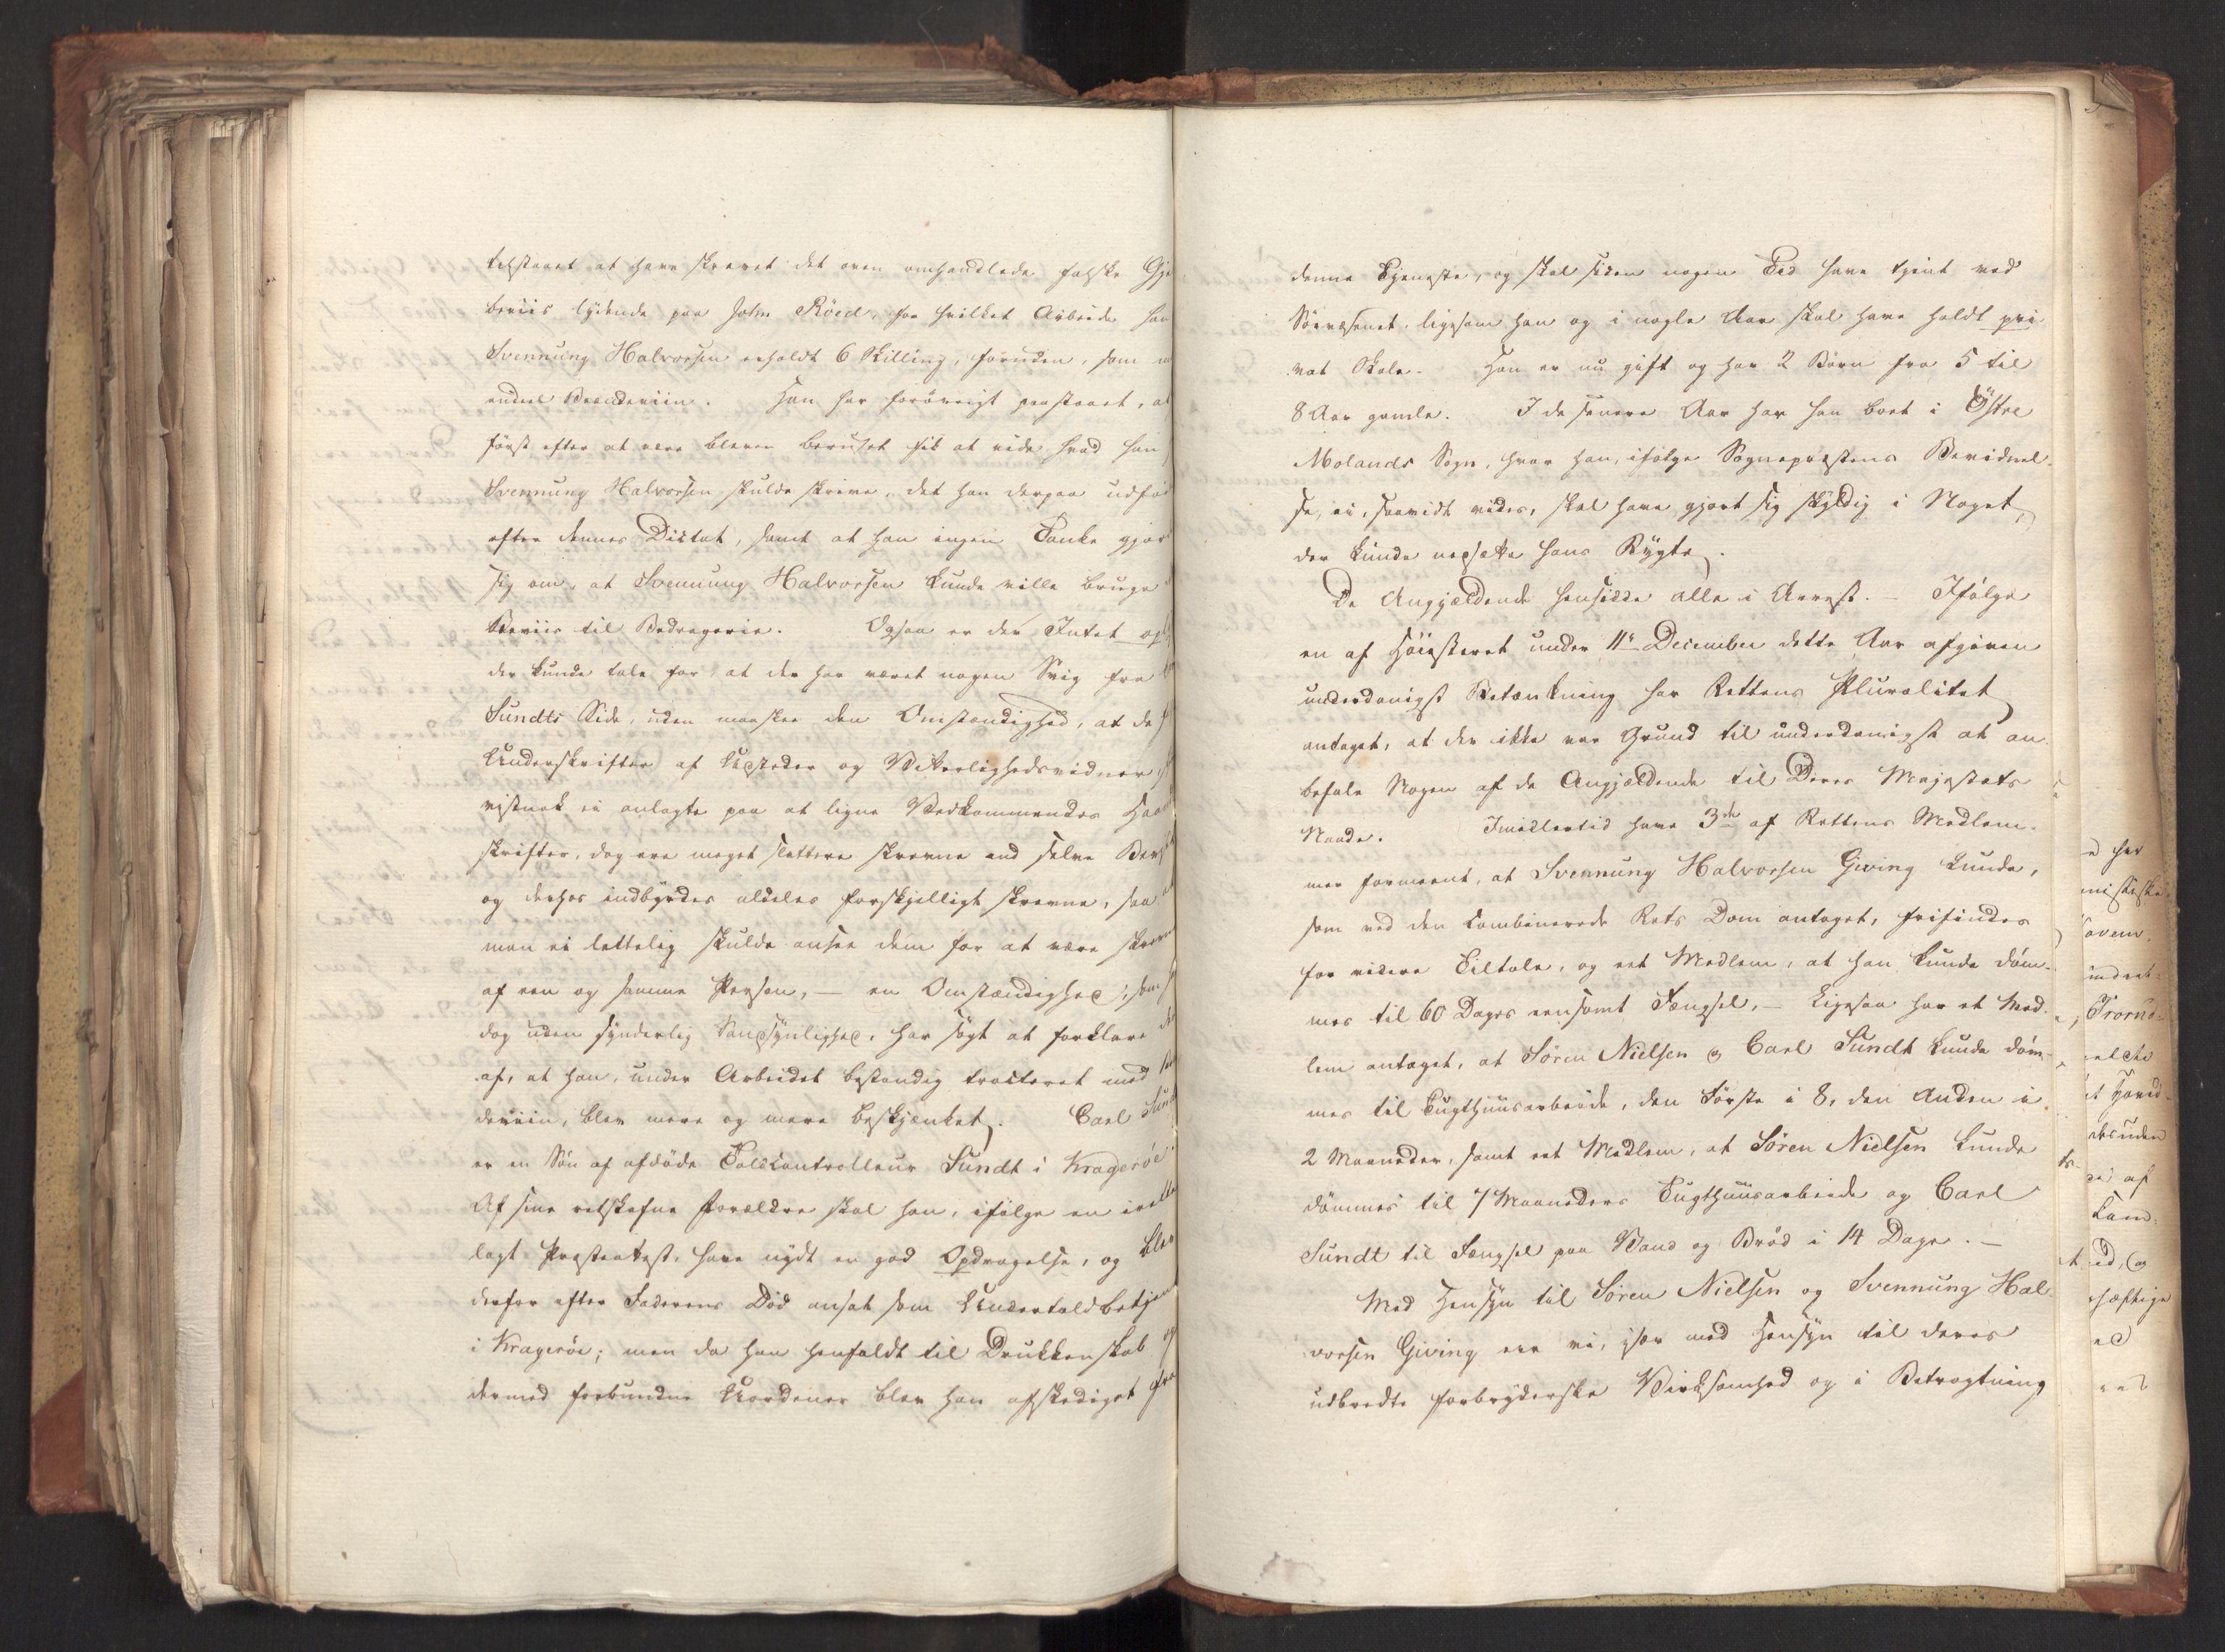 tilstaaet at have skrevet det oven omhandlede falske Gje
beviis lydende paa John Röed, for hvilket Arbeide han
Svennung Halvorsen erholdt 6 Skilling, foruden, som
endeel Brændeviin. Han har forövrigt paastaaet, at
först efter at være bleven beruset fik at vide hvad han
Svennung Halvorsen skulde skrive, det han derpaa udför
efter dennes Dictat, samt at han ingen Tanke gjor
sig om, at Svennung Halvorsen kunde ville bruge
Beviis til Bedragerie. Ogsaa er der Intet op
der kunde tale for at der har været nogen Svig fra
Sundts Side, uden maaskee den Omstændighed, at de
Underskrifter af Udsteder og Vitterlighedsvidner
vistnok ei anlagte paa at ligne Vedkommendes Haand
skrifter, dog ere meget slettere skrevne end selve Bev
og derhos indbyrdes aldeles forskjelligt skrevne, saa
man ei lettelig skulde ansee dem for at være skrevne
af een og samme Person, — en Omstændighed, som
dog uden synderlig Sandsynlighed, har sögt at forklare
af, at han, under Arbeidet bestandig tracteret med
deviin, blev mere og mere beskjænket. Carl Sund
er en Sön af afdöde Toldcontrolleur Sundt i Kragerøe.
Af sine retskafne Forældre skal han, ifölge en
lagt Præsteattest, have nydt en god Opdragelse, og blev
derfor efter Faderens Död ansat som Undertoldbetjent
i Kragerøe; men da han henfaldt til Drukkenskab og
dermed forbundne Uordener blev han afskediget fra
denne Tjeneste, og skal siden nogen Tid have tjent ved
Söevæsenet, ligesom han og i nogle Aar skal have holdt pri
vat Skole. Han er nu gift og har 2 Börn fra 5 til
8 Aar gamle. I de senere Aar har han boet i Östre
Molands Sogn, hvor han, ifölge Sognepræstens Bevidnel-
se, ei, saavidt vides, skal have gjort sig skyldig i Noget,
der kunde nedsætte hans Rygte.
De Angjældende hensidde alle i Arrest. — Ifölge
en af Höiesteret under 11te December dette Aar afgiven
underdanigst Betænkning har Rettens Pluralitet
antaget, at der ikke var Grund til underdanigst at an
befale Nogen af de Angjældende til Deres Majestæts
Naade. Imidlertid have 3de af Rettens Medlem-
mer formeent, at Svennung Halvorsen Giving kunde,
som ved den combinerede Rets Dom antaget, frifindes
for videre Tiltale, og eet Medlem, at han kunde döm-
mes til 60 Dages eensomt Fængsel, — Ligesaa har et Med-
lem antaget, at Sören Nielsen og Carl Sundt kunde döm-
mes til Tugthuusarbeide, den Förste i 8, den Anden i
2 Maaneder, samt eet Medlem, at Sören Nielsen kunde
dömmes til 7 Maaneders Tugthuusarbeide og Carl
Sundt til Fængsel paa Vand og Bröd i 14 Dage. —
Med Hensyn til Sören Nielsen og Svennung Hal-
vorsen Giving ere vi, især med Hensyn til deres
udbredte forbryderske Virksomhed og i Betragtning